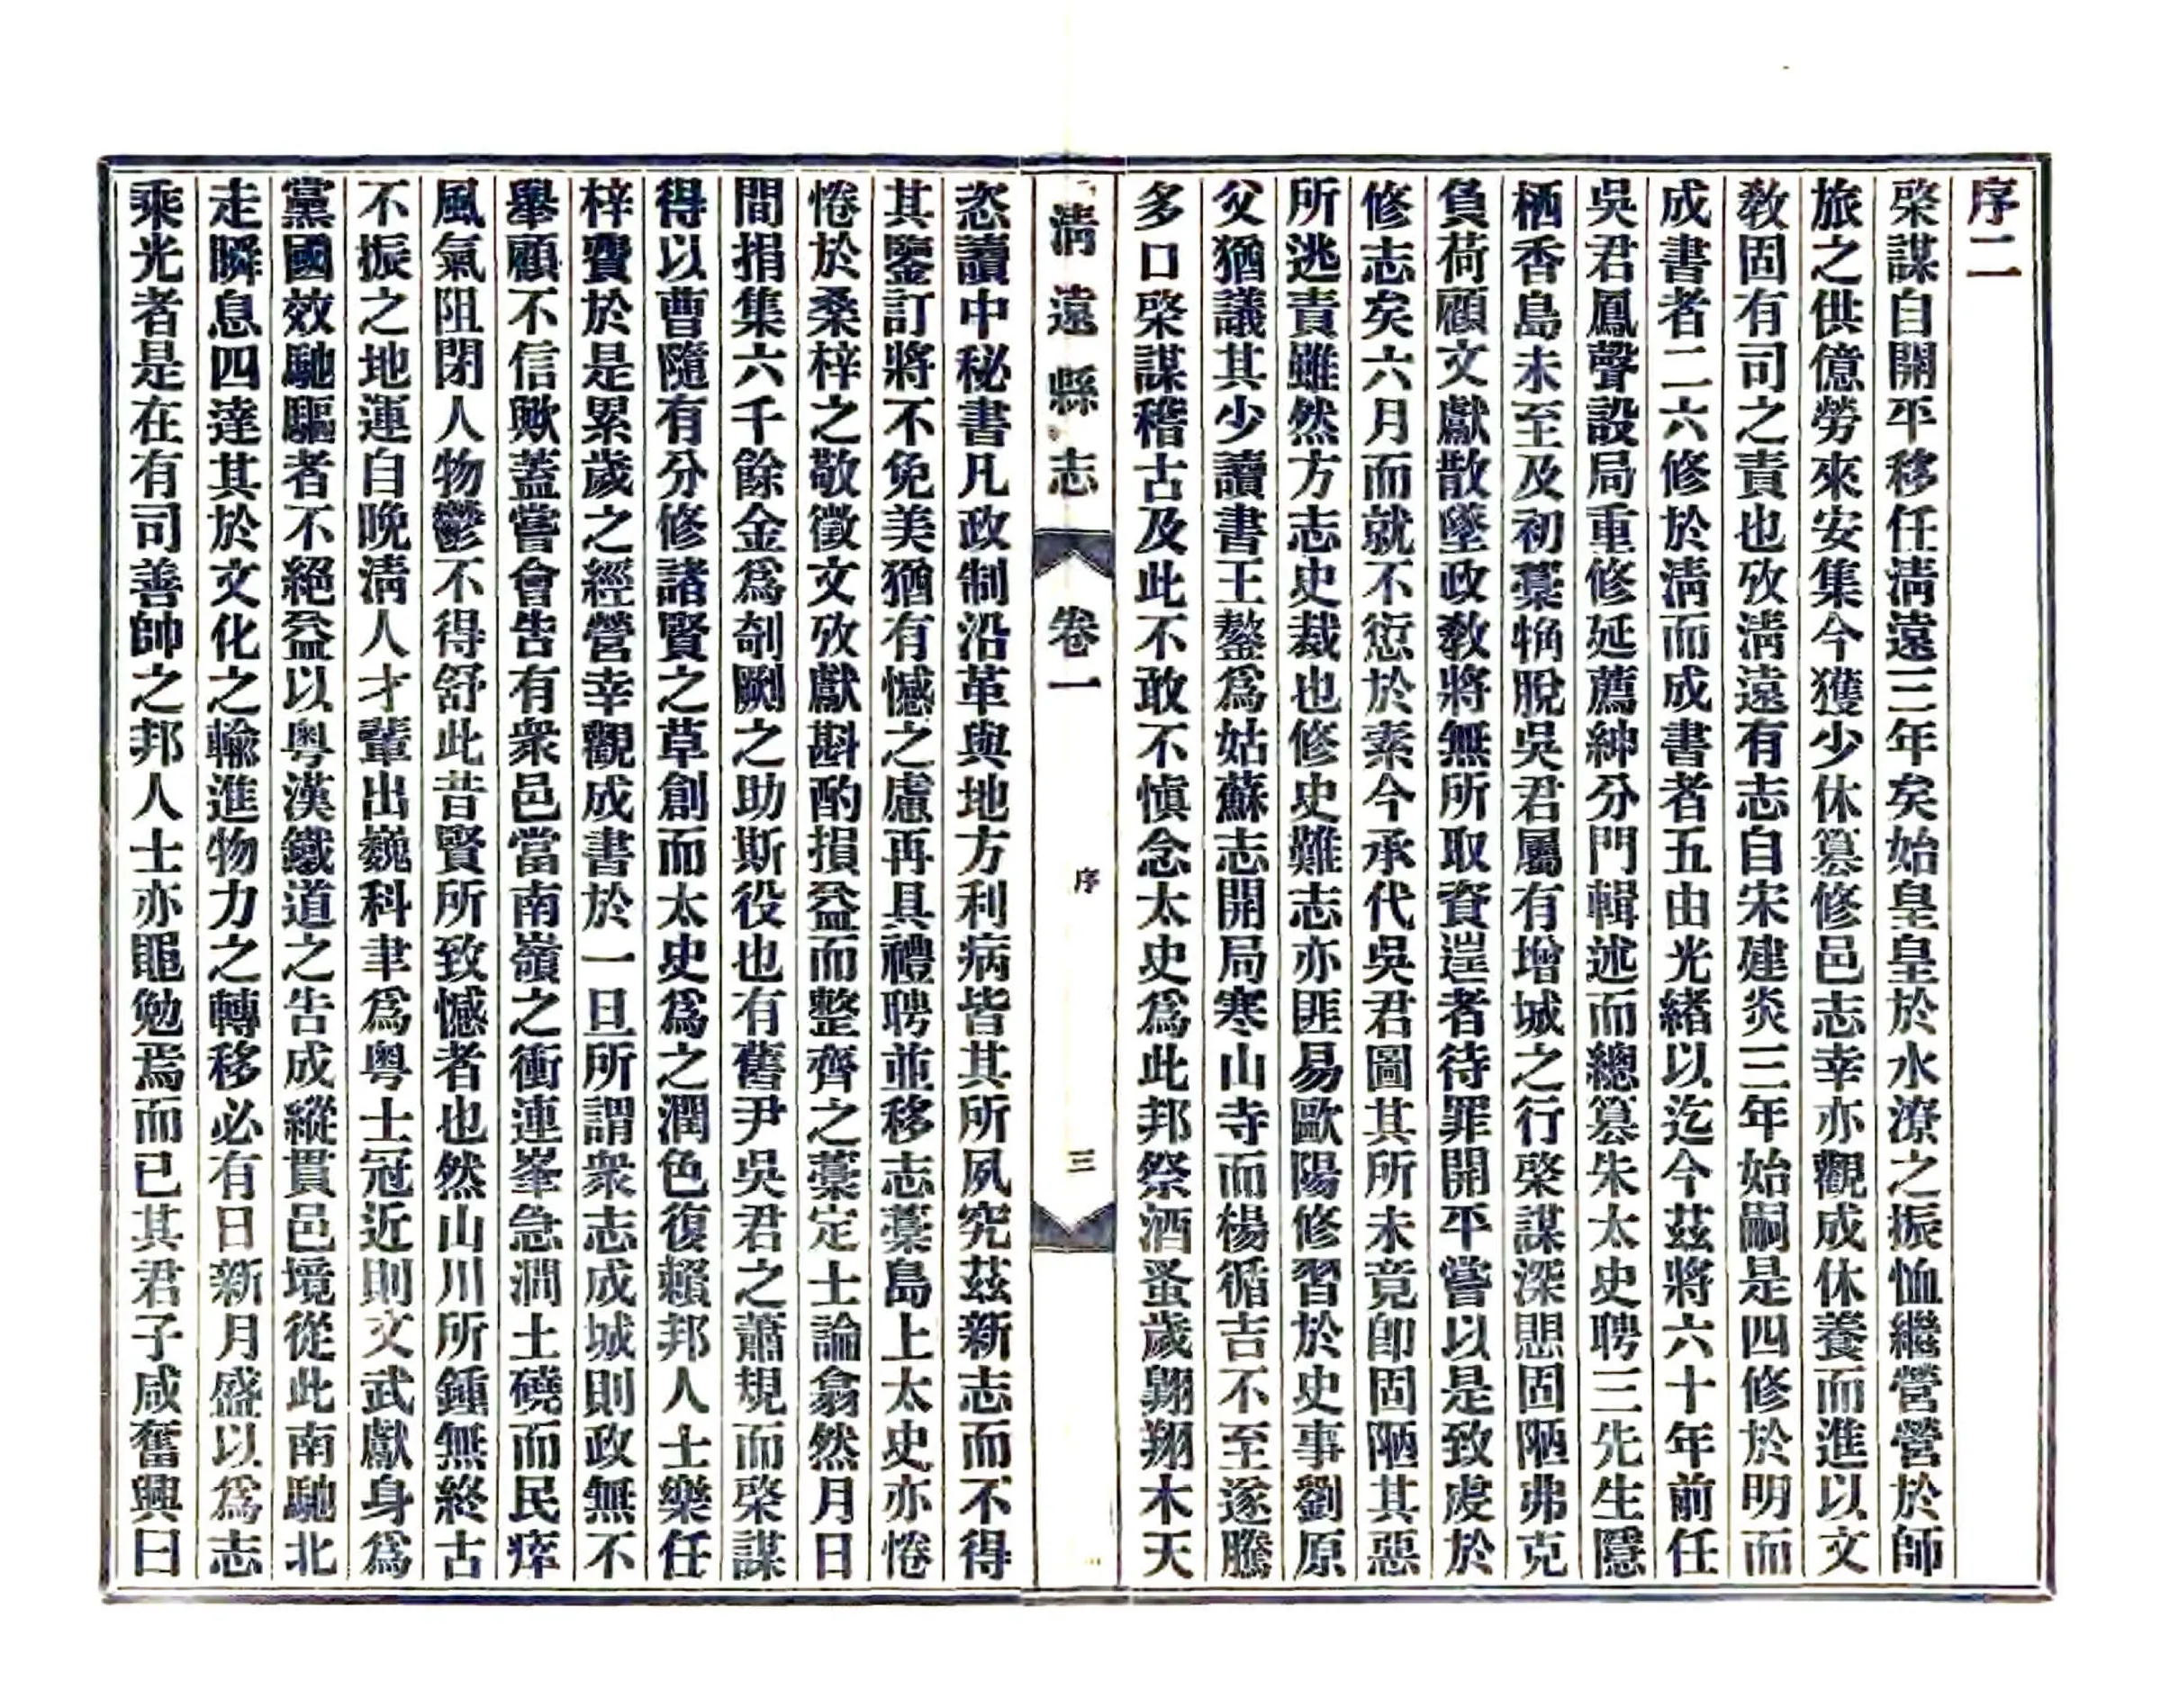 序二
棨謀自開平移任淸遠三年矣始皇皇於水潦之振恤繼營營於師
旅之供億勞來安集今獲少休簒修邑志幸亦觀成休養而進以文
敎固有司之責也攷淸遠有志自宋建炎三年始嗣是四修於明而
成書者二六修於淸而成書者五由光緒以迄今茲將六十年前任
吳君鳳聲設局重修延薦紳分門輯述而總簒朱太史聘三先生隱
栖香島未至及初藁觕脫吳君屬有增城之行棨謀深思固陋弗克
負荷顧文獻散墜政敎將無所取資遑者待罪開平嘗以是致虔於
修志矣六月而就不愆於素今承代吳君圖其所未竟卽固陋其惡
所逃責雖然方志史裁也修史難志亦匪易歐陽修習於史事劉原
父猶議其少讀書王鏊爲姑蘇志開局寒山寺而楊循吉不至遂騰
多口棨謀稽古及此不敢不愼念太史爲此邦祭酒蚤歲翺翔木天
淸遠縣志 卷一 序 三
恣讀中秘書凡政制沿革與地方利病皆其所夙究茲新志而不得
其鑒訂將不免美猶有憾之慮再具禮聘並移志藁島上太史亦惓
惓於桑梓之敬徵文攷獻斟酌損益而整齊之藁定士論翕然月日
間捐集六千餘金爲剞劂之助斯役也有舊尹吳君之蕭規而棨謀
得以曹隨有分修諸賢之草創而太史爲之潤色復賴邦人士樂任
梓費於是累歲之經營幸觀成書於一旦所謂衆志成城則政無不
舉顧不信歟蓋嘗會吿有衆邑當南嶺之衝連峯急澗土磽而民瘁
風氣阻閉人物鬱不得舒此昔賢所致憾者也然山川所鍾無終古
不振之地運自晚淸人才輩出巍科聿爲粤士冠近則文武獻身爲
黨國效馳驅者不絕益以粤漢鐵道之吿成縱貫邑境從此南馳北
走瞬息四達其於文化之輸進物力之轉移必有日新月盛以爲志
乘光者是在有司善帥之邦人士亦黽勉焉而已其君子咸奮興曰